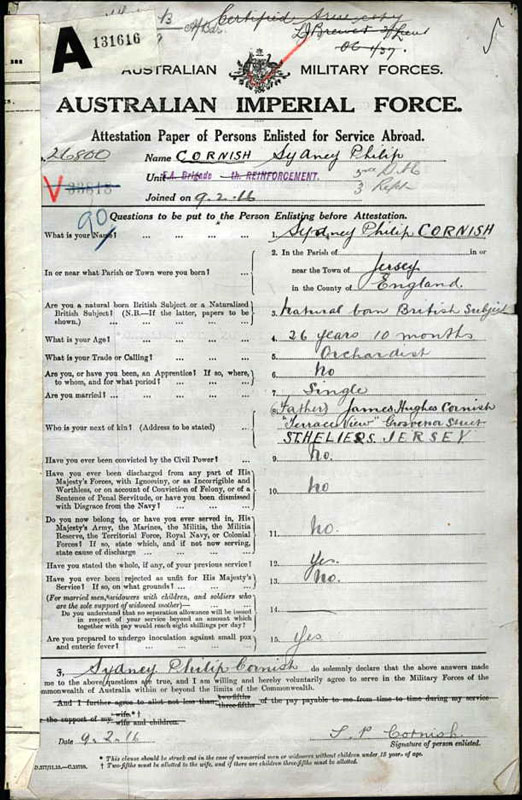 A 131616
Certified true copy
AUSTRALIAN MILITARY FORCES.
AUSTRALIAN IMPERIAL FORCE.
Attestation Paper of Persons Enlisted for Service Abroad.
26800 Name CORNISH Sydney Philip
Unit F.A. Brigade th REINFORCEMENT.
Joined on 9.2.16
90 Questions to be put to the Person Enlisting before Attestation.
What is your Name? ... ... ... 1. Sydney Philip CORNISH
2. In the Parish of in or
In or near what Parish or Town were you born? ... near the Town of Jersey
in the County of England.
Are you a natural born British Subject or a Naturalized
British Subject? (N.B.—If the latter, papers to be 3. Natural born British Subject
shown.) ... ... ...
What is your Age? ... ... ... 4. 26 years 10 months
What is your Trade or Calling? ... ... 5. Orchardist
Are you, or have you been, an Apprentice? If so, where, 6. No
to whom, and for what period? ... ...
Are you married? ... ... ... 7. Single
8. (Father) James Hughes Cornish
Who is your next of kin? (Address to be stated) ... "Terrace View" Grosvenor Street
ST HELIERS JERSEY
Have you ever been convicted by the Civil Power? ... 9. No.
Have you ever been discharged from any part of His
Majesty's Forces, with Ignominy, or as Incorrigible and
Worthless, or on account of Conviction of Felony, or of a 10. No
Sentence of Penal Servitude, or have you been dismissed
with Disgrace from the Navy? ... ...
Do you now belong to, or have you ever served in, His
Majesty's Army, the Marines, the Militia, the Militia
Reserve, the Territorial Force, Royal Navy, or Colonial 11. No.
Forces? If so, state which, and if not now serving,
state cause of discharge ... ...
Have you stated the whole, if any, of your previous service? 12. Yes.
Have you ever been rejected as unfit for His Majesty's 13. No.
Service? If so, on what grounds? ... ...
(For married men, widowers with children, and soldiers who
are the sole support of widowed mother)—
Do you understand that no separation allowance will be issued 14. —
in respect of your service beyond an amount which
together with pay would reach eight shillings per day?
Are you prepared to undergo inoculation against small pox 15. Yes
and enteric fever?
I, Sydney Philip Cornish do solemnly declare that the above answers made
me to the above questions are true, and I am willing and hereby voluntarily agree to serve in the Military Forces of the
mmonwealth of Australia within or beyond the limits of the Commonwealth.
And I further agree to allot not less than two-fifths three-fifths of the pay payable to me from time to time during my service
the support of my wife* wife and children.†
Date 9.2.16 S. P. Cornish
Signature of person enlisted.
* This clause should be struck out in the case of unmarried men or widowers without children under 18 years of age.
† Two-fifths must be allotted to the wife, and if there are children three-fifths must be allotted.